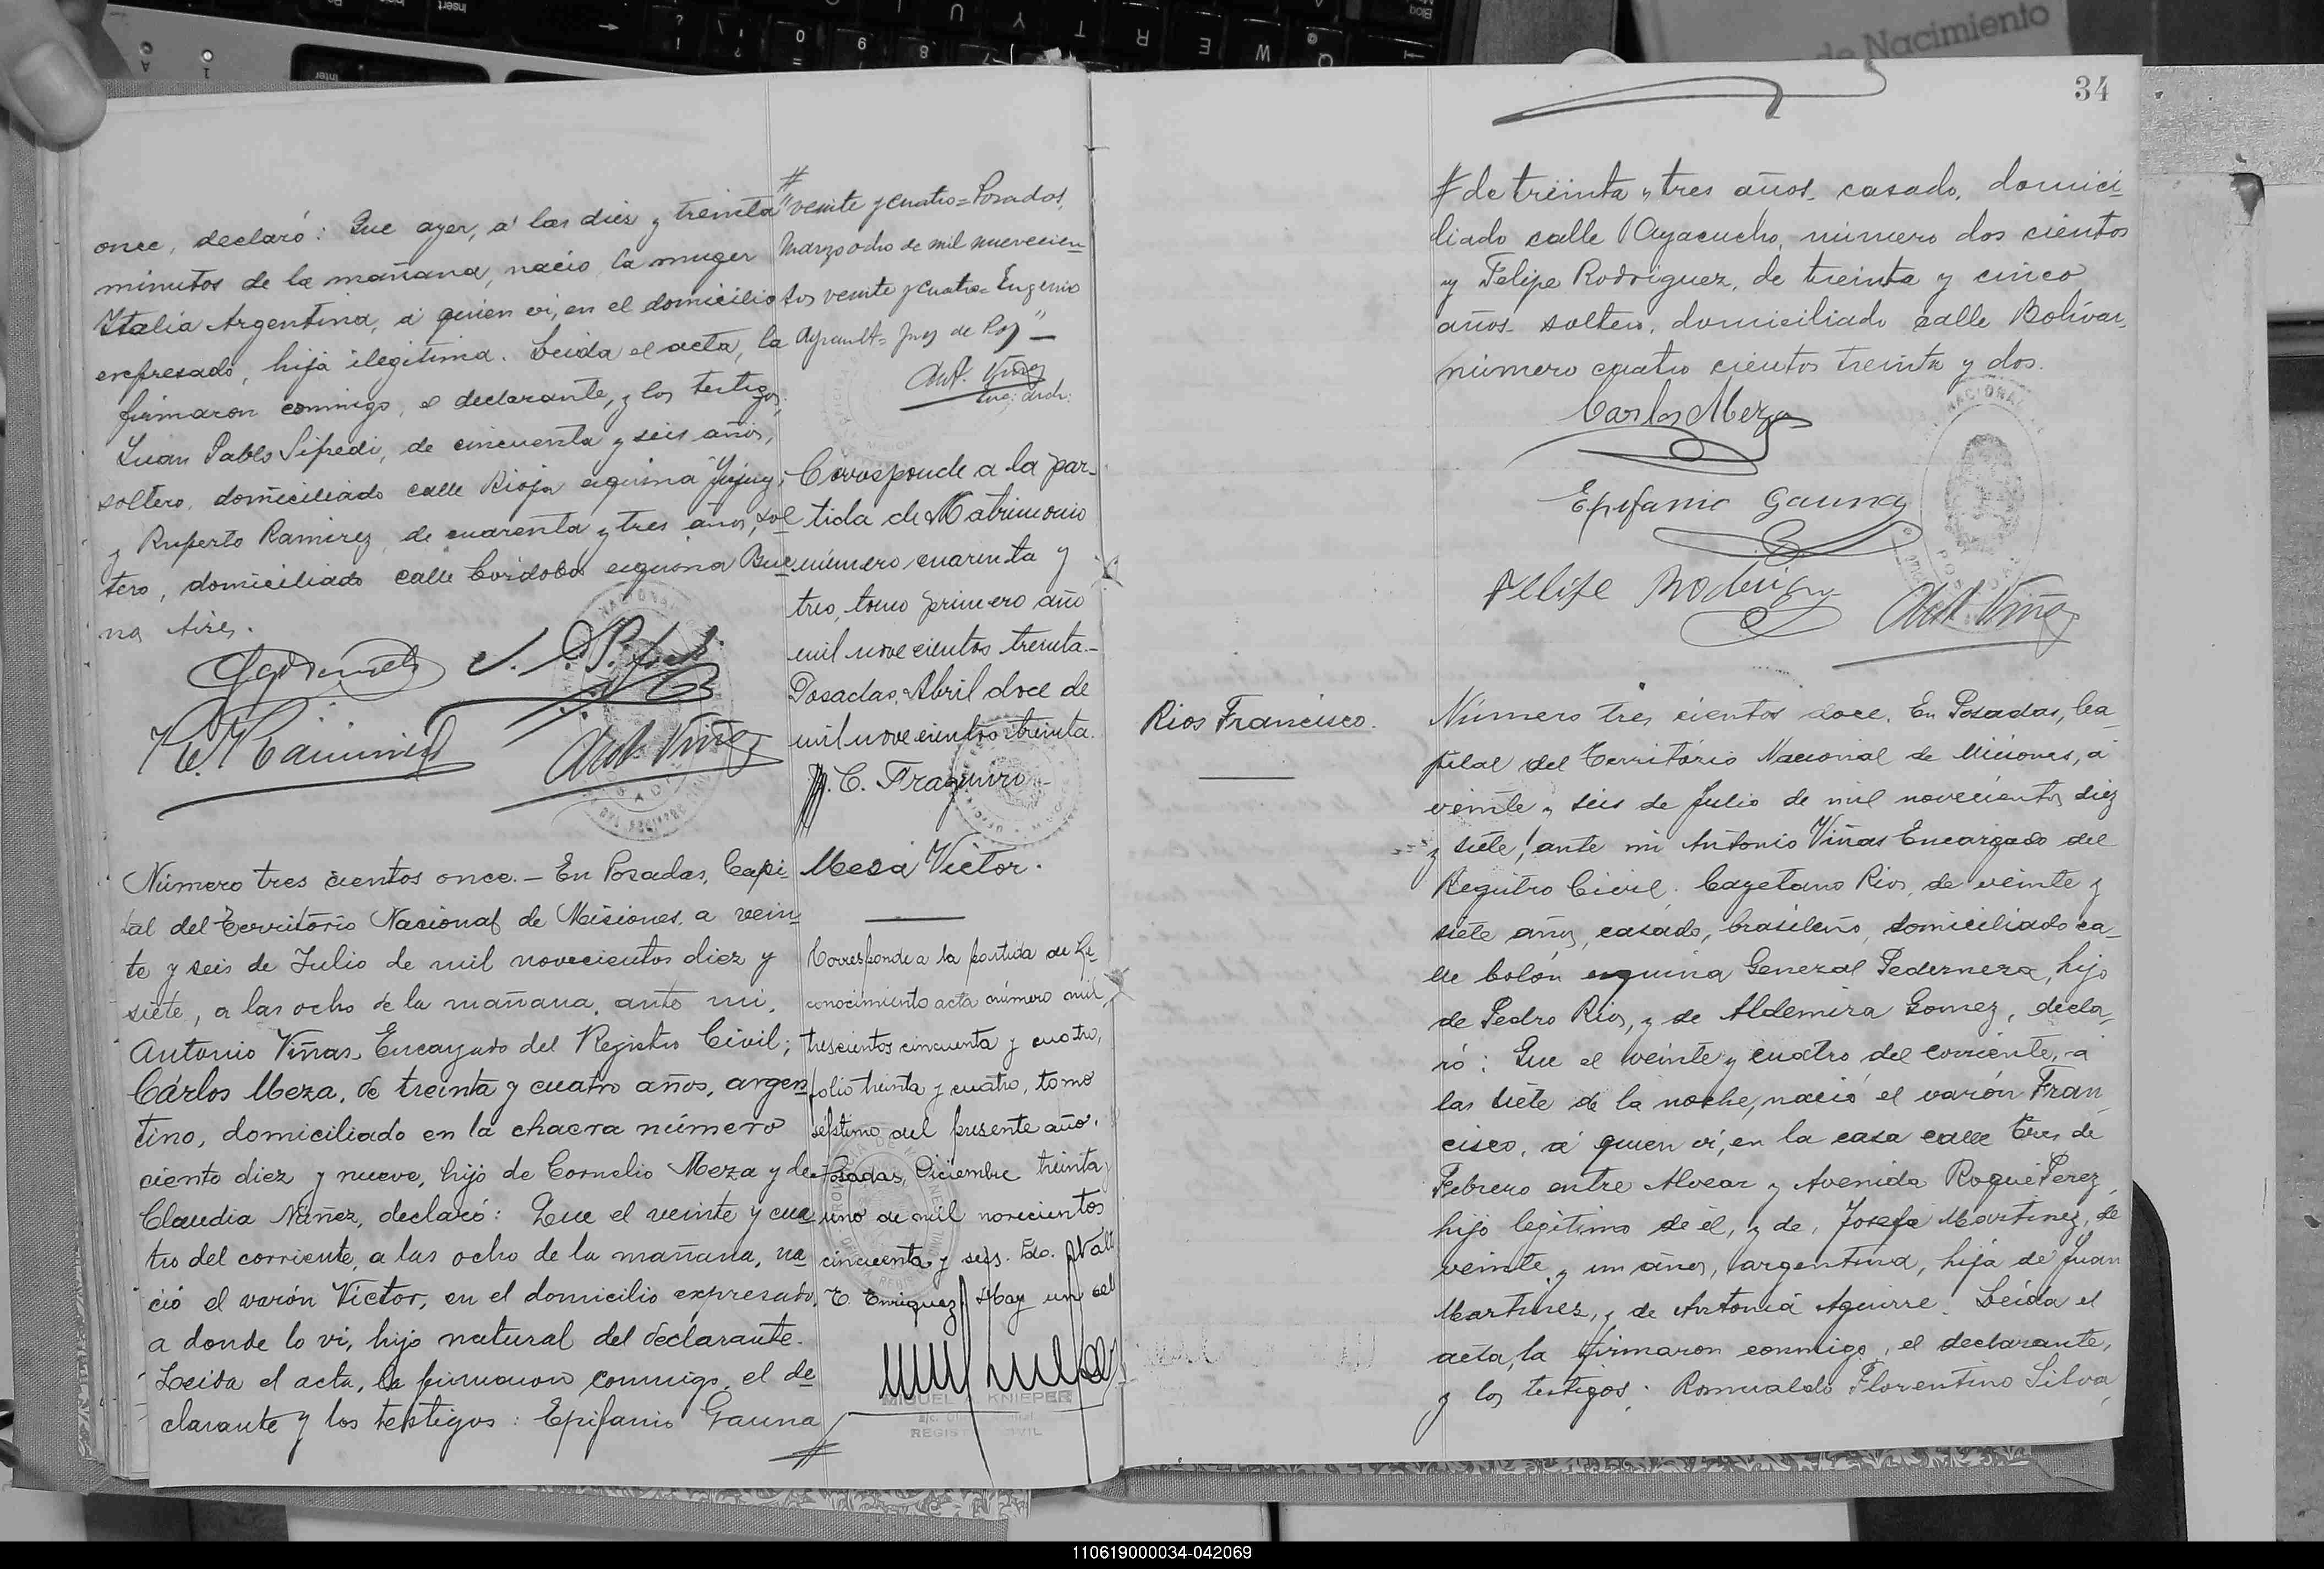 once, declaró: Que ayer, a' las diez y treinta
minutos de la mañana, nació la muger
Italia Argentina, a' quien vi, en el domicilio
expresado, hija ilegitima. Leida el acta, la
firmaron conmigo, el declarante, y los testigos,
Juan Pablo Sifredi, de cincuenta y seis años,
soltero, domiciliado calle Rioja esquina Jujuy;
y Ruperto Ramirez, de cuarenta y tres años, sol
tero, domiciliado calle Cordoba esquina Bue
nos Aires.
R. Ramirez
Ant. Viñas
Número tres cientos once. — En Posadas, Capi-
tal del Territorio Nacional de Misiones, a vein-
te y seis de Julio de mil novecientos diez y
siete, a las ocho de la mañana, ante mi,
Antonio Viñas, Encargado del Registro Civil;
Cárlos Meza, de treinta y cuatro años, argen
tino, domiciliado en la chacra número
ciento diez y nueve, hijo de Cornelio Meza y de
Claudia Nuñez, declaró: Que el veinte y cua
tro del corriente, a las ocho de la mañana, na
ció el varón Victor, en el domicilio expresado,
a donde lo vi, hijo natural del declarante.
Leida el acta, la firmaron conmigo, el de
clarante y los testigos: Epifanio Gauna
#
#
"veinte y cuatro = Posadas,
Marzo ocho de mil novecien-
tos veinte y cuatro = Eugenio
Juez de Paz" —
Ant. Viñas
Corresponde a la par-
tida de Matrimonio
número cuarenta y
tres, tomo primero año
mil novecientos treinta.-
Posadas, Abril doce de
mil novecientos treinta.
C. Fragueiro
Meza Victor.
Corresponde a la partida de Re-
conocimiento acta número mil,
trescientos cincuenta y cuatro,
folio treinta y cuatro, tomo
séptimo del presente año.
Posadas, Diciembre treinta y
uno de mil novecientos
cincuenta y seis. Fdo.
E. Enriquez. Hay un sel
MIGUEL A. KNIEPER
REGISTRO CIVIL
de Nacimiento
34
# de treinta y tres años, casado, domici-
liado calle Ayacucho, número dos cientos
y Felipe Rodriguez, de treinta y cinco
años, soltero, domiciliado calle Bolívar,
número cuatro cientos treinta y dos.
Carlos Meza
Epifanio Gauna
Felipe Rodriguez
Ant. Viñas
Rios Francisco.
Número tres cientos doce. En Posadas, Ca-
pital del Territorio Nacional de Misiones, a'
veinte y seis de Julio de mil novecientos diez
y siete, ante mi Antonio Viñas Encargado del
Registro Civil, Cayetano Rios, de veinte y
siete años, casado, brasileño, domiciliado ca-
lle Colón esquina General Pedernera, hijo
de Pedro Rios, y de Aldemira Gomez, decla-
ró: Que el veinte y cuatro del corriente, a
las siete de la noche, nació el varón Fran-
cisco, a' quien vi, en la casa calle Tres de
Febrero entre Alvear y Avenida Roque Perez,
hijo legitimo de él, y de, Josefa Martinez, de
veinte y un años, argentina, hija de Juan
Martinez, y de Antonia Aguirre. Leida el
acta, la firmaron conmigo, el declarante,
y los testigos: Romualdo Florentino Silva,
110619000034-042069